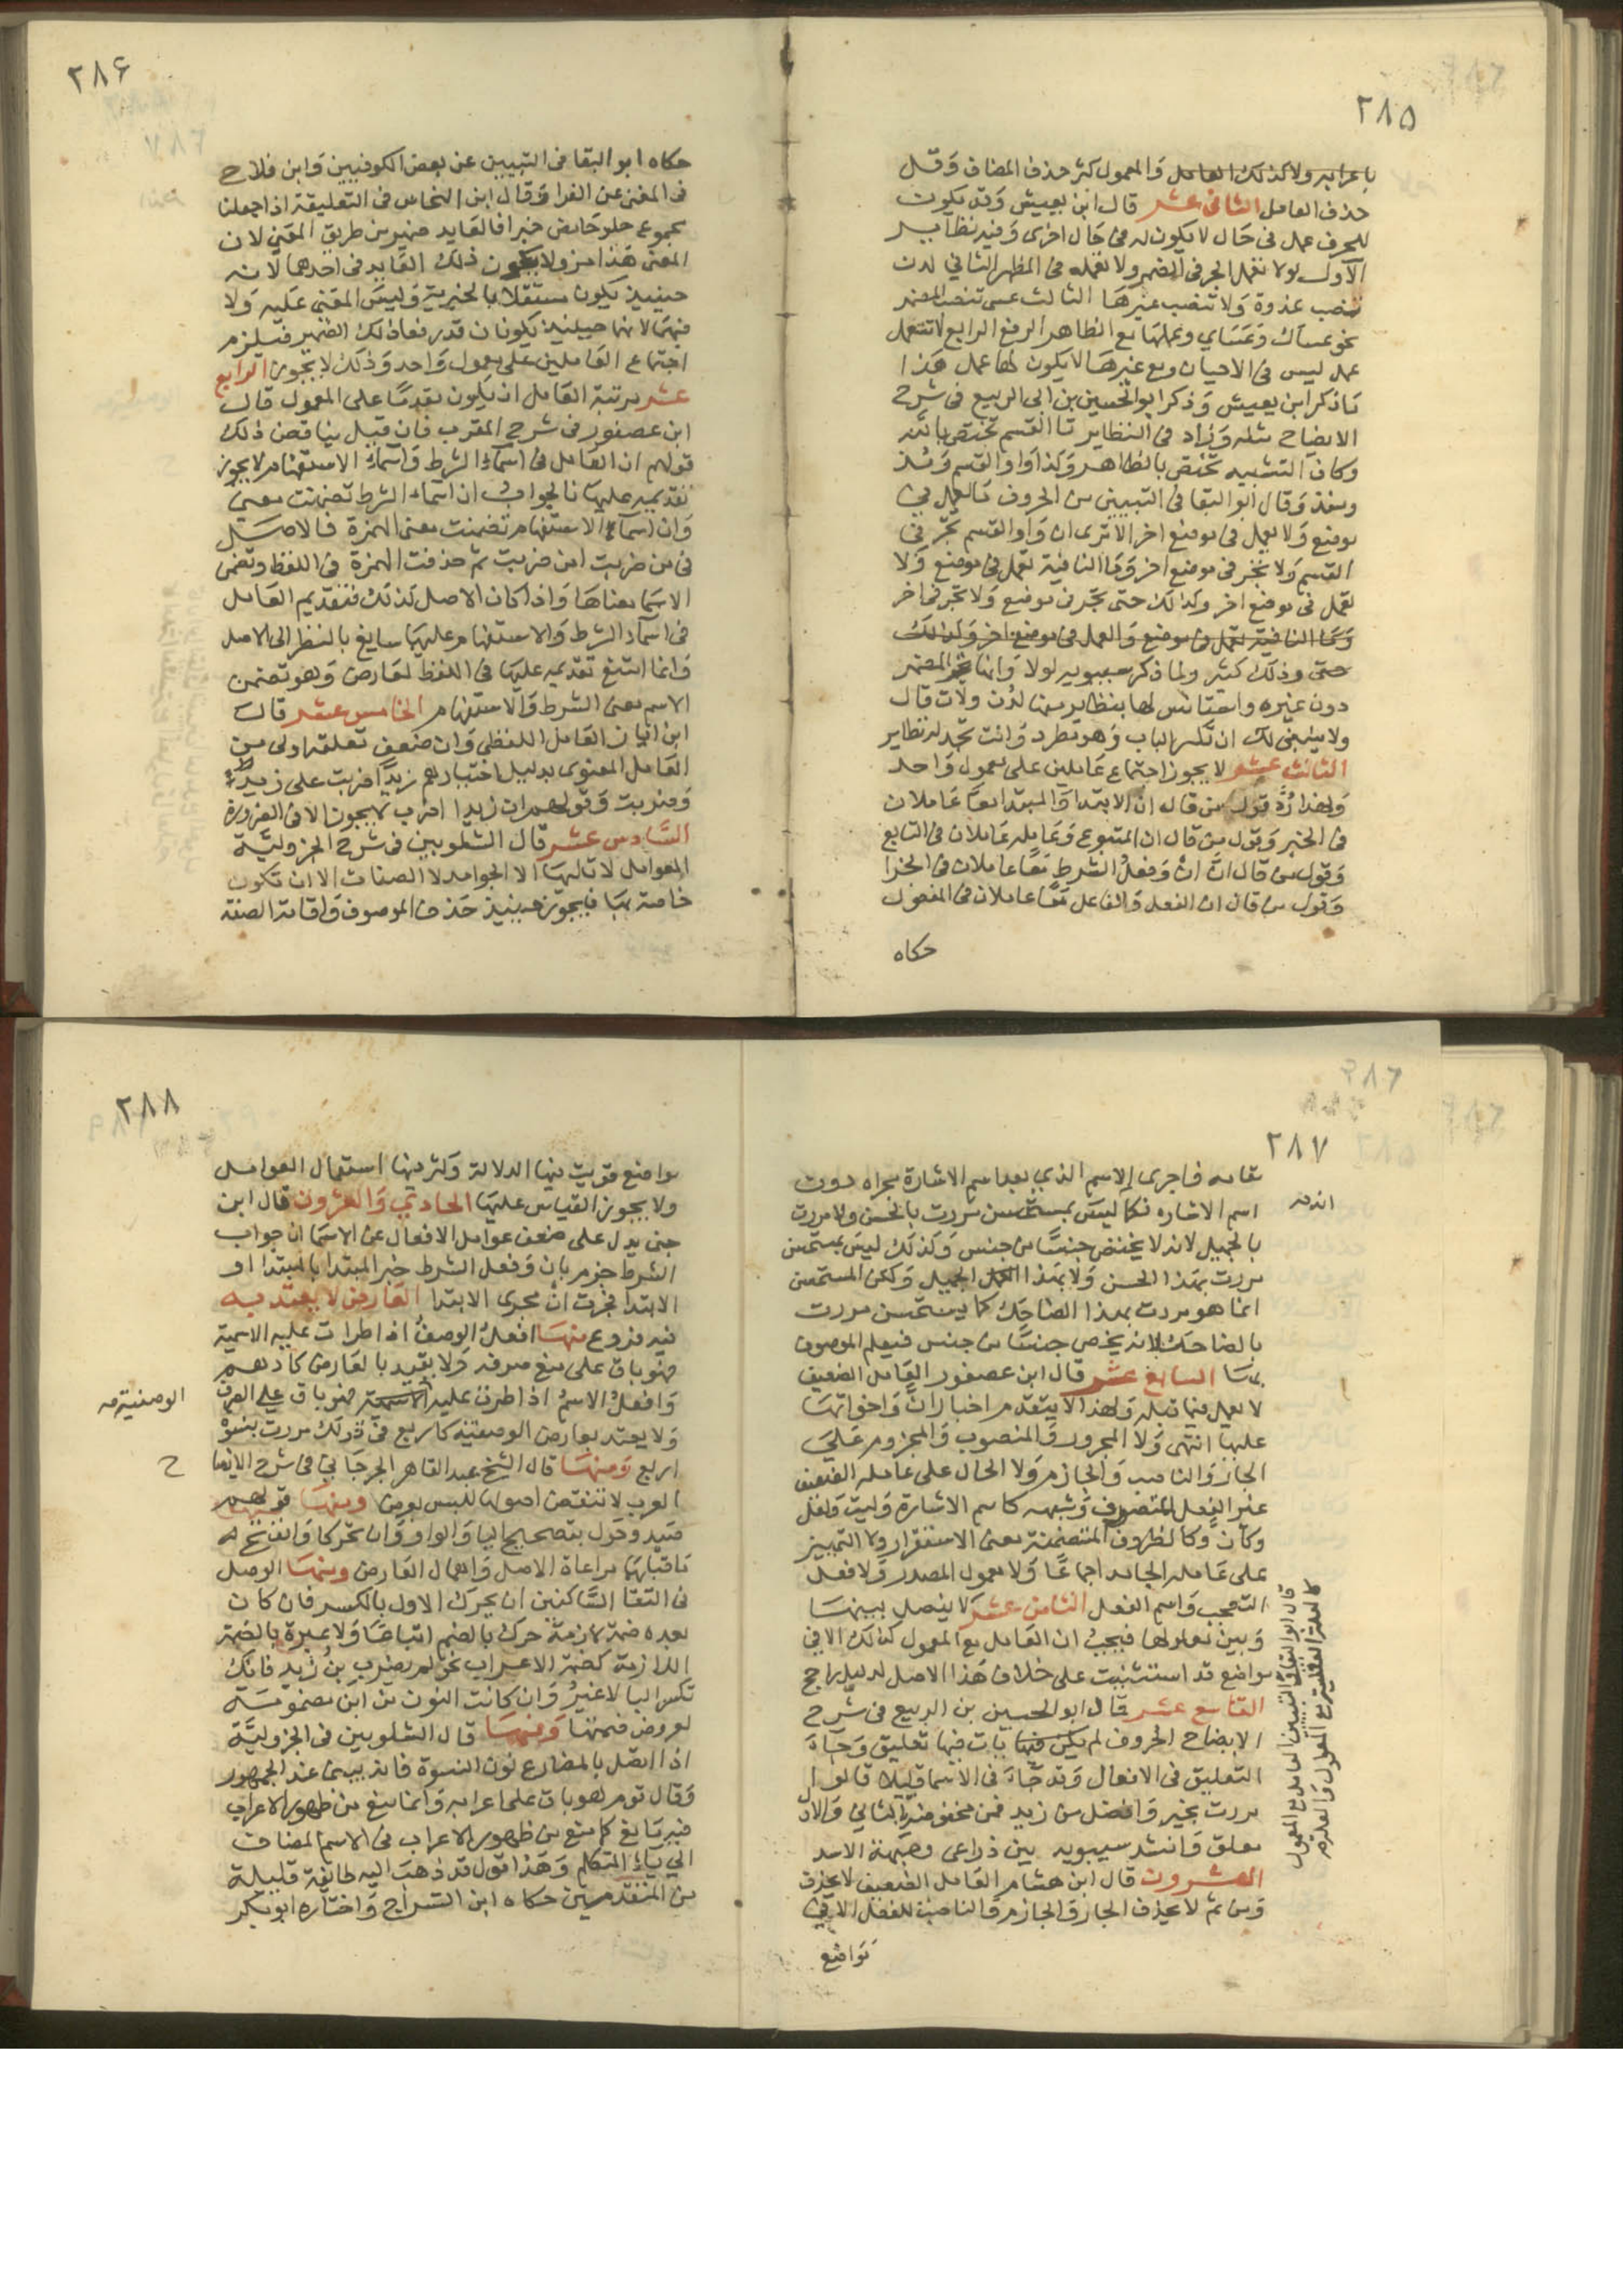 ٢٨٥
باعرابه ولا كذلك العامل والمعمول كثر حذف المضاف وقل
حذف العامل الثاني عشر قال ابن يعيش وقد يكون
للحرف عمل في حال لا يكون له في حال اخرى وفيه نظاير
الاول لولا تعمل الجر في المضمر ولا تعمله في المظهر الثاني لدن
تنصب غدوة ولا تنصب غيرها الثالث عسى تنصب المضمر
نحو عساك وعساي وعملها مع الظاهر الرفع الرابع لات تعمل
عمل ليس في الاحيان ومع غيرها لا يكون لها عمل هذا
ما ذكر ابن يعيش وذكر ابو الحسين بن ابى الربيع في شرح
الايضاح مثله وزاد في النظاير تا القسم تختص بالله
وكاف التشبيه تختص بالظاهر وكذا واو القسم ومذ
ومنذ وقال أبو البقا في التبيين من الحروف ما يعمل في
موضع ولا يعمل في موضع اخر الا ترى ان واو القسم تجر في
القسم ولا تجر في موضع اخر وما النافية تعمل في موضع ولا
تعمل في موضع اخر وكذلك حتى تجر في موضع ولا تجر في اخر
وما النافية تعمل في موضع والعمل في موضع اخر وكذلك
حتى وذلك كثير ولما ذكر سيبويه لولا وانها تجر المضمر
دون غيره واستانس لها بنظاير منها لدن ولات قال
ولا ينبغي لك ان تكسر الباب وهو مطرد وانت تجد له نظاير
الثالث عشر لا يجوز اجتماع عاملين على معمول واحد
ولهذا رد قول من قال ان الابتدا والمبتدا معا عاملان
في الخبر وقول من قال ان المتبوع وعامله عاملان في التابع
وقول من قال ان ان وفعل الشرط معا عاملان في الجزا
وقول من قال ان الفعل والفاعل معا عاملان في المفعول
حكاه
٢٨۶
حكاه ابو البقا في التبيين عن بعض الكوفيين وابن فلاح
في المغني عن الفرا وقال ابن النحاس في التعليقة اذا جعلنا
مجموع حلو حامض خبرا فالعايد ضمير من طريق المعني لان
المعنى هذا مز ولا يكون ذلك العايد في احدهما لانه
حينيذ يكون مستقلا بالخبرية وليس المعنى عليه ولا
فيهما لانهما حينيذ يكونان قد رفعا ذلك الضمير فيلزم
اجتماع العاملين على معمول واحد وذلك لا يجوز الرابع
عشر مرتبة العامل ان يكون مقدما على المعمول قال
ابن عصفور في شرح المقرب فان قيل يناقض ذلك
قولهم ان العامل في اسماء الشرط واسماء الاستفهام لا يجوز
تقديمه عليها فالجواب ان اسماء الشرط تضمنت معنى
وان اسماء الاستفهام تضمنت معنى الهمزة فالاصل
في من ضربت امن ضربت ثم حذفت الهمزة في اللفظ وتضمن
الاسم معناها واذا كان الاصل كذلك فتقديم العامل
في اسماء الشرط والاستفهام عليها سايغ بالنظر الى الاصل
وانما امتنع تقديمه عليها في اللفظ لعارض وهو تضمن
الاسم معنى الشرط والاستفهام الخامس عشر قال
ابن اياز العامل اللفظي وان ضعف تعلقه اولى من
العامل المعنوي بدليل اختيارهم زيدا ضربت على زيد
وضربت وقولهم ان زيدا اضرب لا يجوز الا في الضرورة
السادس عشر قال الشلوبين في شرح الجزولية
العوامل لا تاليها الا الجوامد لا الصفات الا ان تكون
خاصة بها فيجوز حينيذ حذف الموصوف واقامة الصفة
٢٨٧
مقامه فاجرى الاسم الذي بعد اسم الاشارة مجراه دون
اسم الاشاره فكما ليس بمستحسن مررت بالحسن ولا مررت
بالجميل لانه لا يختص جنسا من جنس وكذلك ليس بمستحسن
مررت بهذا الحسن ولا بهذا الجميل ولكن المستحسن
انما هو مررت بهذا الضاحك كما يستحسن مررت
بالضاحك لانه يخص جنسا من جنس فيعلم الموصوف
بها السابع عشر قال ابن عصفور العامل الضعيف
لا يعمل فيما قبله ولهذا لا يتقدم اخبار ان واخواتها
عليها انتهى ولا المجرور والمنصوب والمجزوم على
الجار والناصب والجازم ولا الحال على عامله الضعيف
غير الفعل المتصرف وشبهه كاسم الاشارة وليت ولعل
وكأن وكالظروف المتضمنة معنى الاستقرار ولا التمييز
على عامله الجامد اجماعا ولا معمول المصدر ولا فعل
التعجب واسم الفعل الثامن عشر لا يفصل بينها
وبين معمولها فيجب ان العامل مع المعمول كذلك الا في
مواضع قد استثنيت على خلاف هذا الاصل لدليل راجح
التاسع عشر قال ابو الحسين بن الربيع في شرح
الايضاح الحروف لم يكن فيها يات فيها تعليق وجاء
التعليق في الافعال وقد جاء في الاسما قليلا قالوا
مررت بخير وافضل من زيد فمن مخفوضة بالثاني والاول
معلق وانشد سيبويه بين ذراعى وجبهة الاسد
العشرون قال ابن هشام العامل الضعيف لا يحذف
ومن ثم لا يحذف الجار والجازم والناصب للفعل الا في
مواضع
قال ابو البقا في التبيين العامل مع المعمول
كالعلة العقلية مع المعلول والعلة
٢٨٨
مواضع قويت فيها الدلالة وكثر فيها استعمال العوامل
ولا يجوز القياس عليها الحادي والعشرون قال ابن
جنى يدل على ضعف عوامل الافعال عن الاسما ان جواب
الشرط جزم بان وفعل الشرط خبر المبتدا بالمبتدا او
الابتدا فجرت ان مجرى الابتدا العارض لا يعتد به
فيه فروع منها افعل الوصف اذا طرات عليه الاسمية
فهو باق على منع صرفه ولا يعتد بالعارض كادهم
وافعل الاسم اذا طرات عليه فهو باق على الصرف
الوصفية صح
ولا يعتد بعارض الوصفية كاربع في قولك مررت بنسوة
اربع ومنها قال الشيخ عبد القاهر الجرجاني في شرح الايضا
ح
العرب لا تنقض اصولها للبس يعرض ومنها قولهم
صيد وحول بتصحيح اليا والواو وان تحركا وانفتح
ما قبلهما مراعاة الاصل واهمال العارض ومنها الوصل
في التقا الساكنين ان يحرك الاول بالكسر فان كان
بعده ضمة لازمة حرك بالضم اتباعا ولا عبرة بالضمة
اللازمة كضمة الاعراب نحو لم يضرب بن زيد فانك
تكسر البا لا غير وان كانت النون من ابن مضمومة
لعروض ضمتها ومنها قال الشلوبين في الجزولية
اذا اتصل بالمضارع نون النسوة فانه يبنى عند الجمهور
وقال قوم هو باق على اعرابه وانما منع من ظهور الاعراب
فيه مانع كما منع من ظهور الاعراب في الاسم المضاف
الي ياء المتكلم وهذا قول قد ذهب اليه طائفة قليلة
من المتقدمين حكاه ابن السراج واختاره ابو بكر